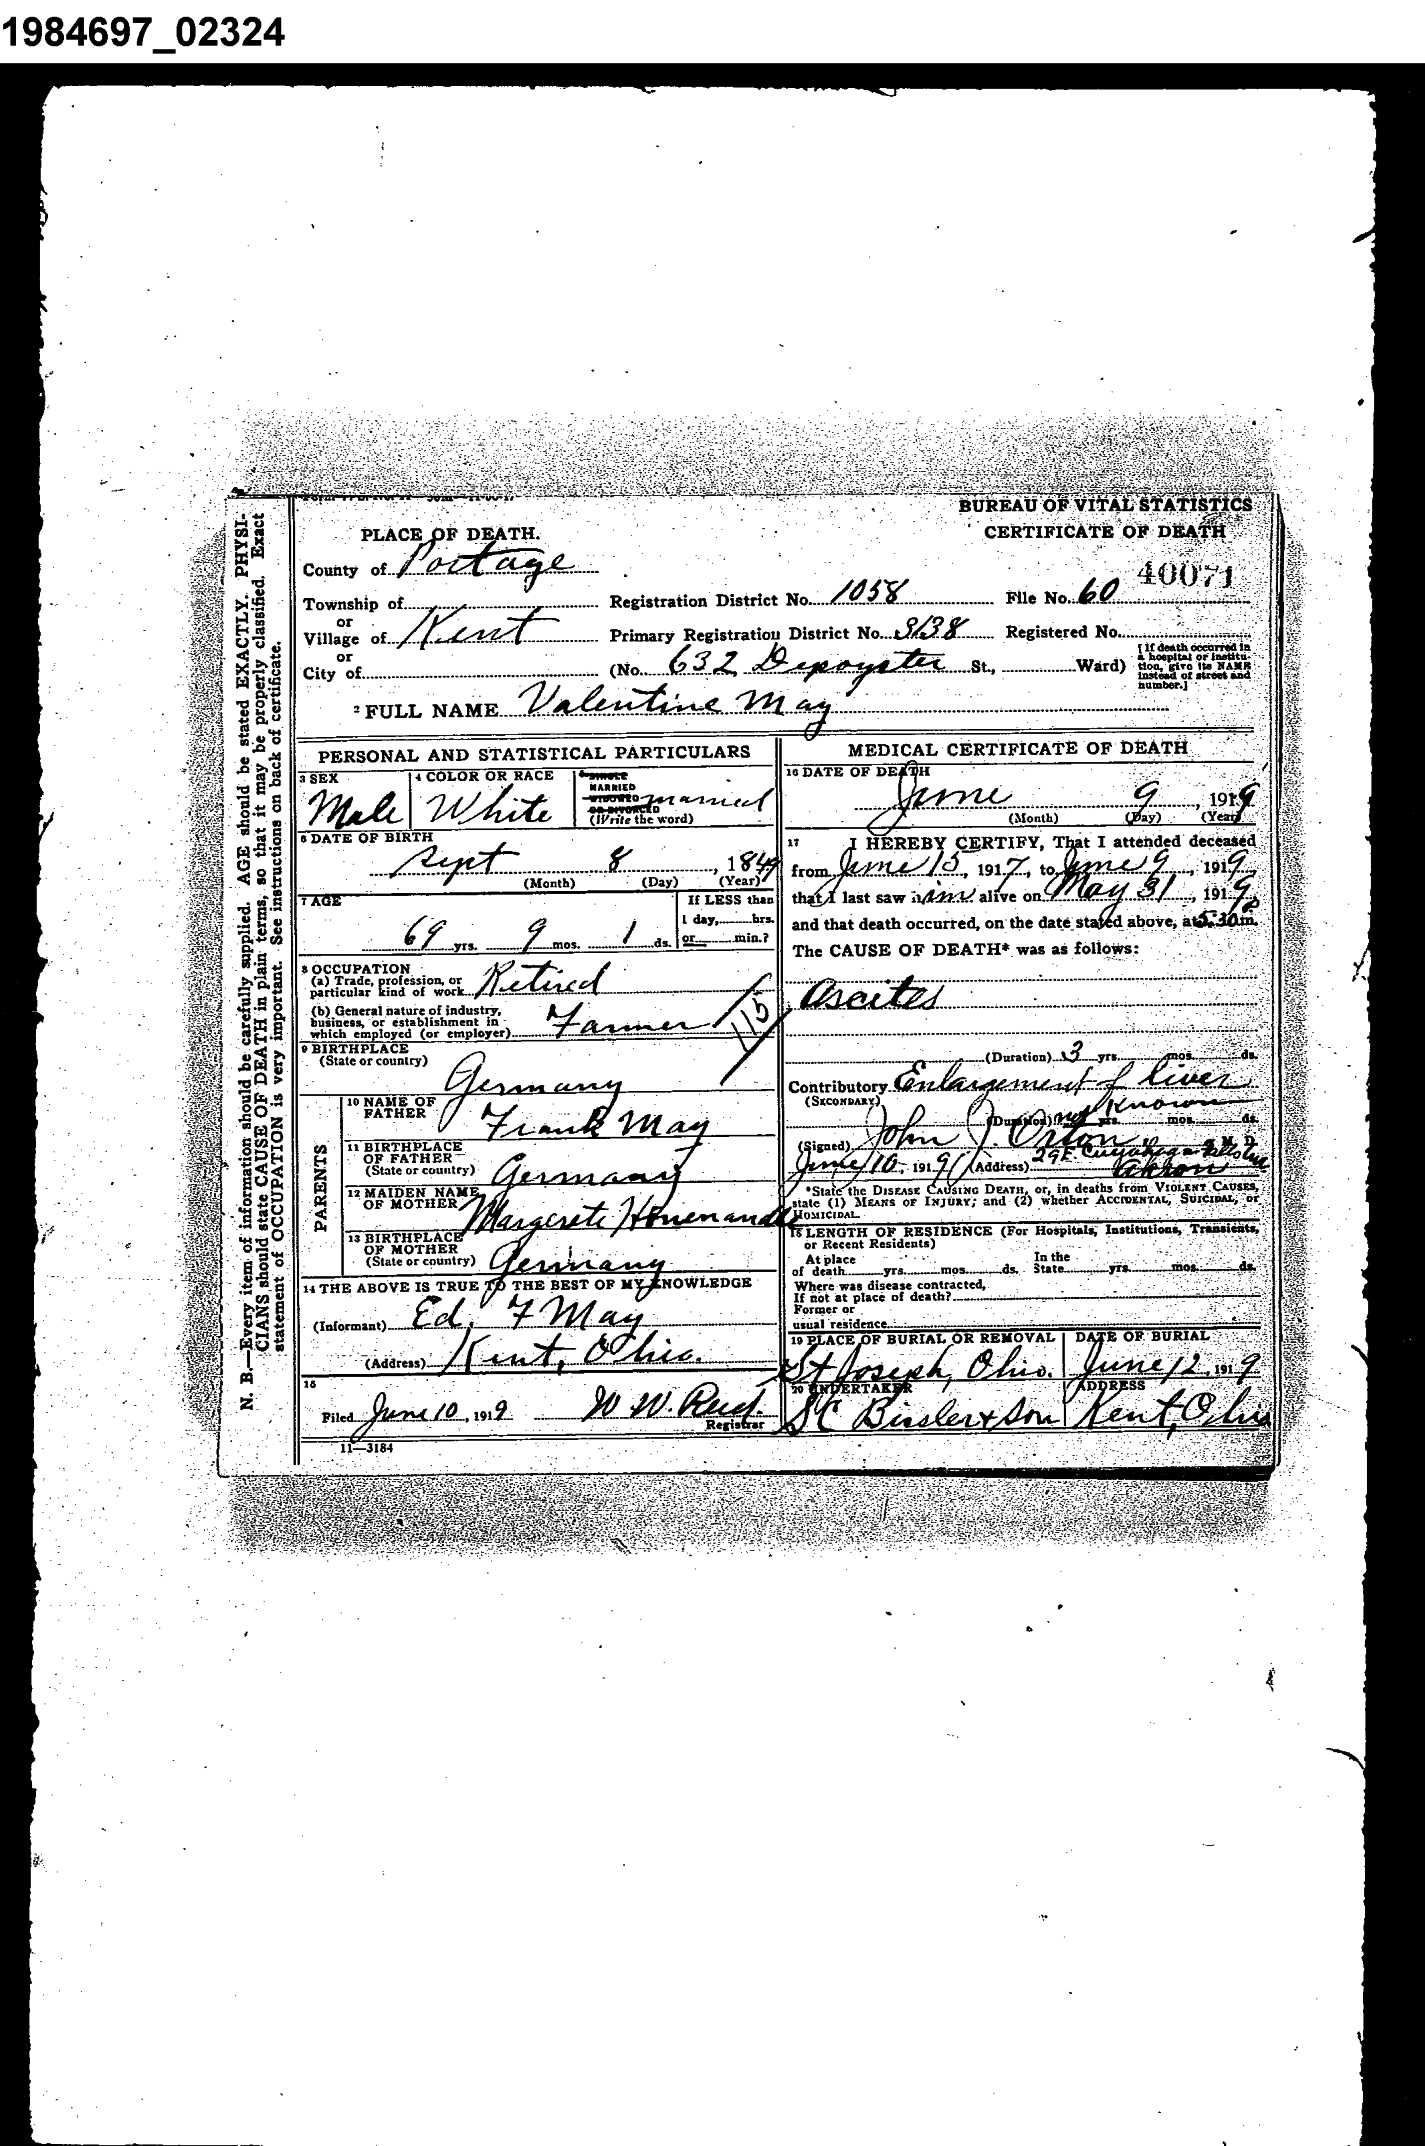 1984697_02324
BUREAU OF VITAL STATISTICS
CERTIFICATE OF DEATH
PLACE OF DEATH.
County of Portage
40071
Township of
Registration District No. 1058
File No. 60
or
Village of Kent
Primary Registration District No. 3138
Registered No.
or
City of
(No. 632 Depeyster St., Ward)
[If death occurred in a hospital or institution, give its NAME instead of street and number.]
2 FULL NAME Valentine May
PERSONAL AND STATISTICAL PARTICULARS
3 SEX
Male
4 COLOR OR RACE
White
SINGLE
MARRIED
WIDOWED
OR DIVORCED
(Write the word)
married
6 DATE OF BIRTH
Sept 8, 1849
(Month) (Day) (Year)
7 AGE
69 yrs. 9 mos. 1 ds.
If LESS than
1 day, hrs.
or min.?
8 OCCUPATION
(a) Trade, profession, or
particular kind of work Retired
(b) General nature of industry,
business, or establishment in
which employed (or employer) Farmer
115
9 BIRTHPLACE
(State or country)
Germany
PARENTS
10 NAME OF
FATHER
Frank May
11 BIRTHPLACE
OF FATHER
(State or country)
Germany
12 MAIDEN NAME
OF MOTHER
Margerete
13 BIRTHPLACE
OF MOTHER
(State or country)
Germany
14 THE ABOVE IS TRUE TO THE BEST OF MY KNOWLEDGE
(Informant) Ed. F May
(Address) Kent, Ohio.
15
Filed June 10, 1919 W W. Reed.
Registrar
11—3184
MEDICAL CERTIFICATE OF DEATH
16 DATE OF DEATH
June 9, 1919
(Month) (Day) (Year)
17 I HEREBY CERTIFY, That I attended deceased
from June 15, 1917, to June 9, 1919,
that I last saw him alive on May 31, 1919,
and that death occurred, on the date stated above, at 5:30 P m.
The CAUSE OF DEATH* was as follows:
Ascites
(Duration) 3 yrs. mos. ds.
Contributory Enlargement of liver
(SECONDARY)
(Duration) not known yrs. mos. ds.
(Signed) John J. Orton M. D.
June 10, 1919 (Address) 29 E Cuyahoga Falls Ave
Akron
*State the DISEASE CAUSING DEATH, or, in deaths from VIOLENT CAUSES,
state (1) MEANS OF INJURY; and (2) whether ACCIDENTAL, SUICIDAL, or
HOMICIDAL.
18 LENGTH OF RESIDENCE (For Hospitals, Institutions, Transients,
or Recent Residents)
At place
of death yrs. mos. ds.
In the
State yrs. mos. ds.
Where was disease contracted,
If not at place of death?
Former or
usual residence
19 PLACE OF BURIAL OR REMOVAL
St Joseph, Ohio.
DATE OF BURIAL
June 12, 1919
20 UNDERTAKER
S C Bissler & Son
ADDRESS
Kent, Ohio
N. B.—Every item of information should be carefully supplied. AGE should be stated EXACTLY. PHYSI-
CIANS should state CAUSE OF DEATH in plain terms, so that it may be properly classified. Exact
statement of OCCUPATION is very important. See instructions on back of certificate.